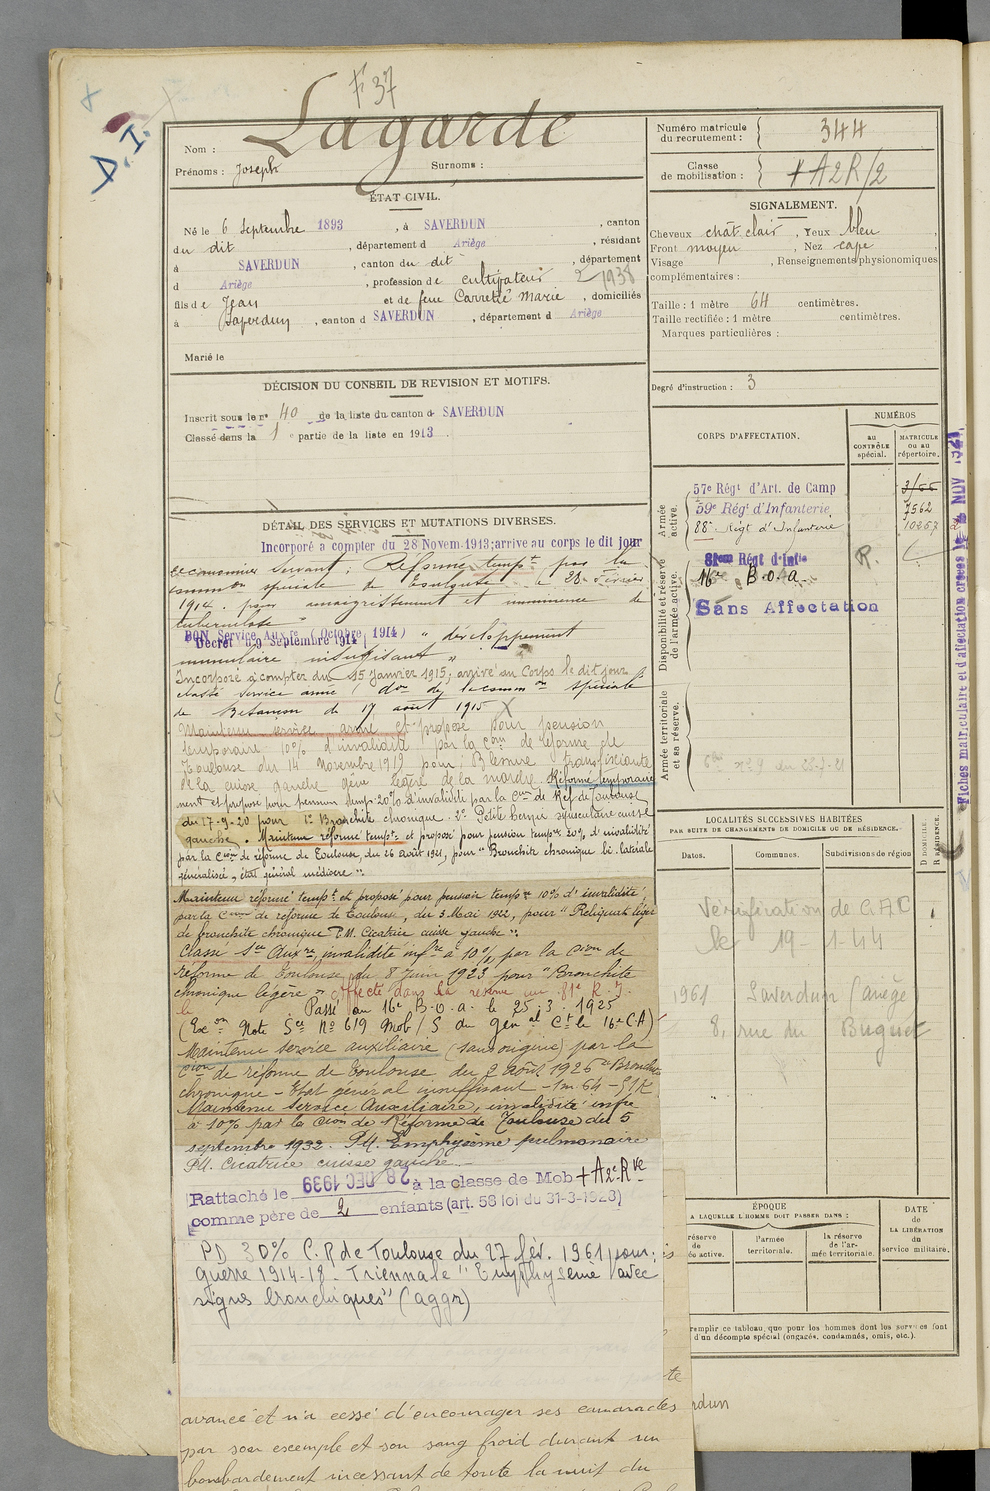 F 37
D.I.
Nom : Lagarde
Prénoms : Joseph Surnoms :
ÉTAT CIVIL.
Né le 6 Septembre 1893, à SAVERDUN, canton
du dit, département d Ariège, résidant
à SAVERDUN, canton du dit, département
d Ariège, profession de cultivateur 2 1938
fils de Jean et de feue Carretié Marie, domiciliés
à Saverdun, canton d SAVERDUN, département d Ariège
Marié le
DÉCISION DU CONSEIL DE REVISION ET MOTIFS.
Inscrit sous le n° 40 de la liste du canton d SAVERDUN
Classé dans la 1e partie de la liste en 1913.
DÉTAIL DES SERVICES ET MUTATIONS DIVERSES.
Incorporé a compter du 28 Novem. 1913; arrive au corps le dit jour
servant. Réformé tempt par la
comm on spéciale de Toulouse le 28 Février
1914. pour amaigrissement et imminence de
tuberculose
BON Service Auxre (Octobre 1914) " développement
Décret du 9 Septembre 1914
musculaire insuffisant "
Incorporé à compter du 15 janvier 1915, arrivé au Corps le dit jour
classé service armé don de la comm on spéciale
de Besançon du 17 août 1915 X
Maintenu service armé et proposé pour pension
temporaire 10% d'invalidité par la Com de réforme de
Toulouse du 14 Novembre 1919 pour : Blessure transfixiante
de la cuisse gauche gêne légère de la marche. Réformé temporaire
ment et proposé pour pension temp. 20% d'invalidité par la Con de Réf. de Toulouse
du 17-9-20 pour 1° Bronchite chronique. 2° Petite hernie musculaire cuisse
gauche. Maintenu réformé tempre et proposé pour pension tempre 20% d'invalidité
par la Con de réforme de Toulouse, du 26 août 1921, pour "Bronchite chronique bi-latérale
généralisée, état général médiocre".
Maintenu réformé tempt et proposé pour pension tempre 10% d'invalidité,
par la Con de réforme de Toulouse, du 3 Mai 1922, pour "Reliquat léger
de bronchite chronique P.M. Cicatrice cuisse gauche".
Classé Sce Auxre, invalidité infre à 10% par la Cion de
réforme de Toulouse du 8 Juin 1923 pour "Bronchite
chronique légère" affecté dans la réserve au 81e R.I.
le Passé au 16e B.O.a. le 25.3.1925
(Exon Note Sce N° 619 Mob/S du Général Ct le 16e C.A)
Maintenu service auxiliaire (sans origine) par la
Cion de réforme de Toulouse du 2 Août 1926 "Bronchite
chronique - Etat général insuffisant - 1m.64 - 51K
Maintenu Service Auxiliaire, invalidité infre
à 10% par la Cion de Réforme de Toulouse du 5
septembre 1932. P.M. Emphysème pulmonaire
P.M. Cicatrice cuisse gauche
Rattaché le 28 DEC 1939 à la classe de Mob + A2e Rve
comme père de 2 enfants (art. 58 loi du 31-3-1928)
PD 30% C.R de Toulouse du 27 fév. 1961 pour :
Guerre 1914-18 - Triennale "Emphysème avec
signes bronchiques" (aggr)
te
avancé et n'a cessé d'encourager ses camarades
par son exemple et son sang froid durant un
bombardement incessant de toute la nuit du
Numéro matricule du recrutement : 344
Classe de mobilisation : + A2R/2
SIGNALEMENT.
Cheveux chât clair, Yeux bleu,
Front moyen, Nez cave,
Visage , Renseignements physionomiques
complémentaires :
Taille : 1 mètre 64 centimètres.
Taille rectifiée : 1 mètre centimètres.
Marques particulières :
Degré d'instruction : 3
CORPS D'AFFECTATION.
NUMÉROS
AU CONTRÔLE spécial.
MATRICULE ou au répertoire.
Armée active.
57e Régt d'Art. de Camp
59e Rég' d'Infanterie 7562
88e Régt d'Infanterie 10257
Disponibilité et réserve de l'armée active.
81eme Régt d'Infie R.
16e B.O.a.
Sans Affectation
Armée territoriale et sa réserve.
Fiches matriculaire et d'affectation créées le 2 NOV 1921
LOCALITÉS SUCCESSIVES HABITÉES
PAR SUITE DE CHANGEMENTS DE DOMICILE OU DE RÉSIDENCE.
Dates.
Communes.
Subdivisions de région
D DOMICILE.
R RÉSIDENCE.
Vérification de C.A.C
le 19-1-44
1961 Saverdun (ariège)
8, rue du Buguet
ÉPOQUE
A LAQUELLE L'HOMME DOIT PASSER DANS :
réserve
de active.
l'armée territoriale.
la réserve de l'armée territoriale.
DATE de LA LIBÉRATION du service militaire.
remplir ce tableau, que pour les hommes dont les services font
d'un décompte spécial (engagés, condamnés, omis, etc.).
rdun